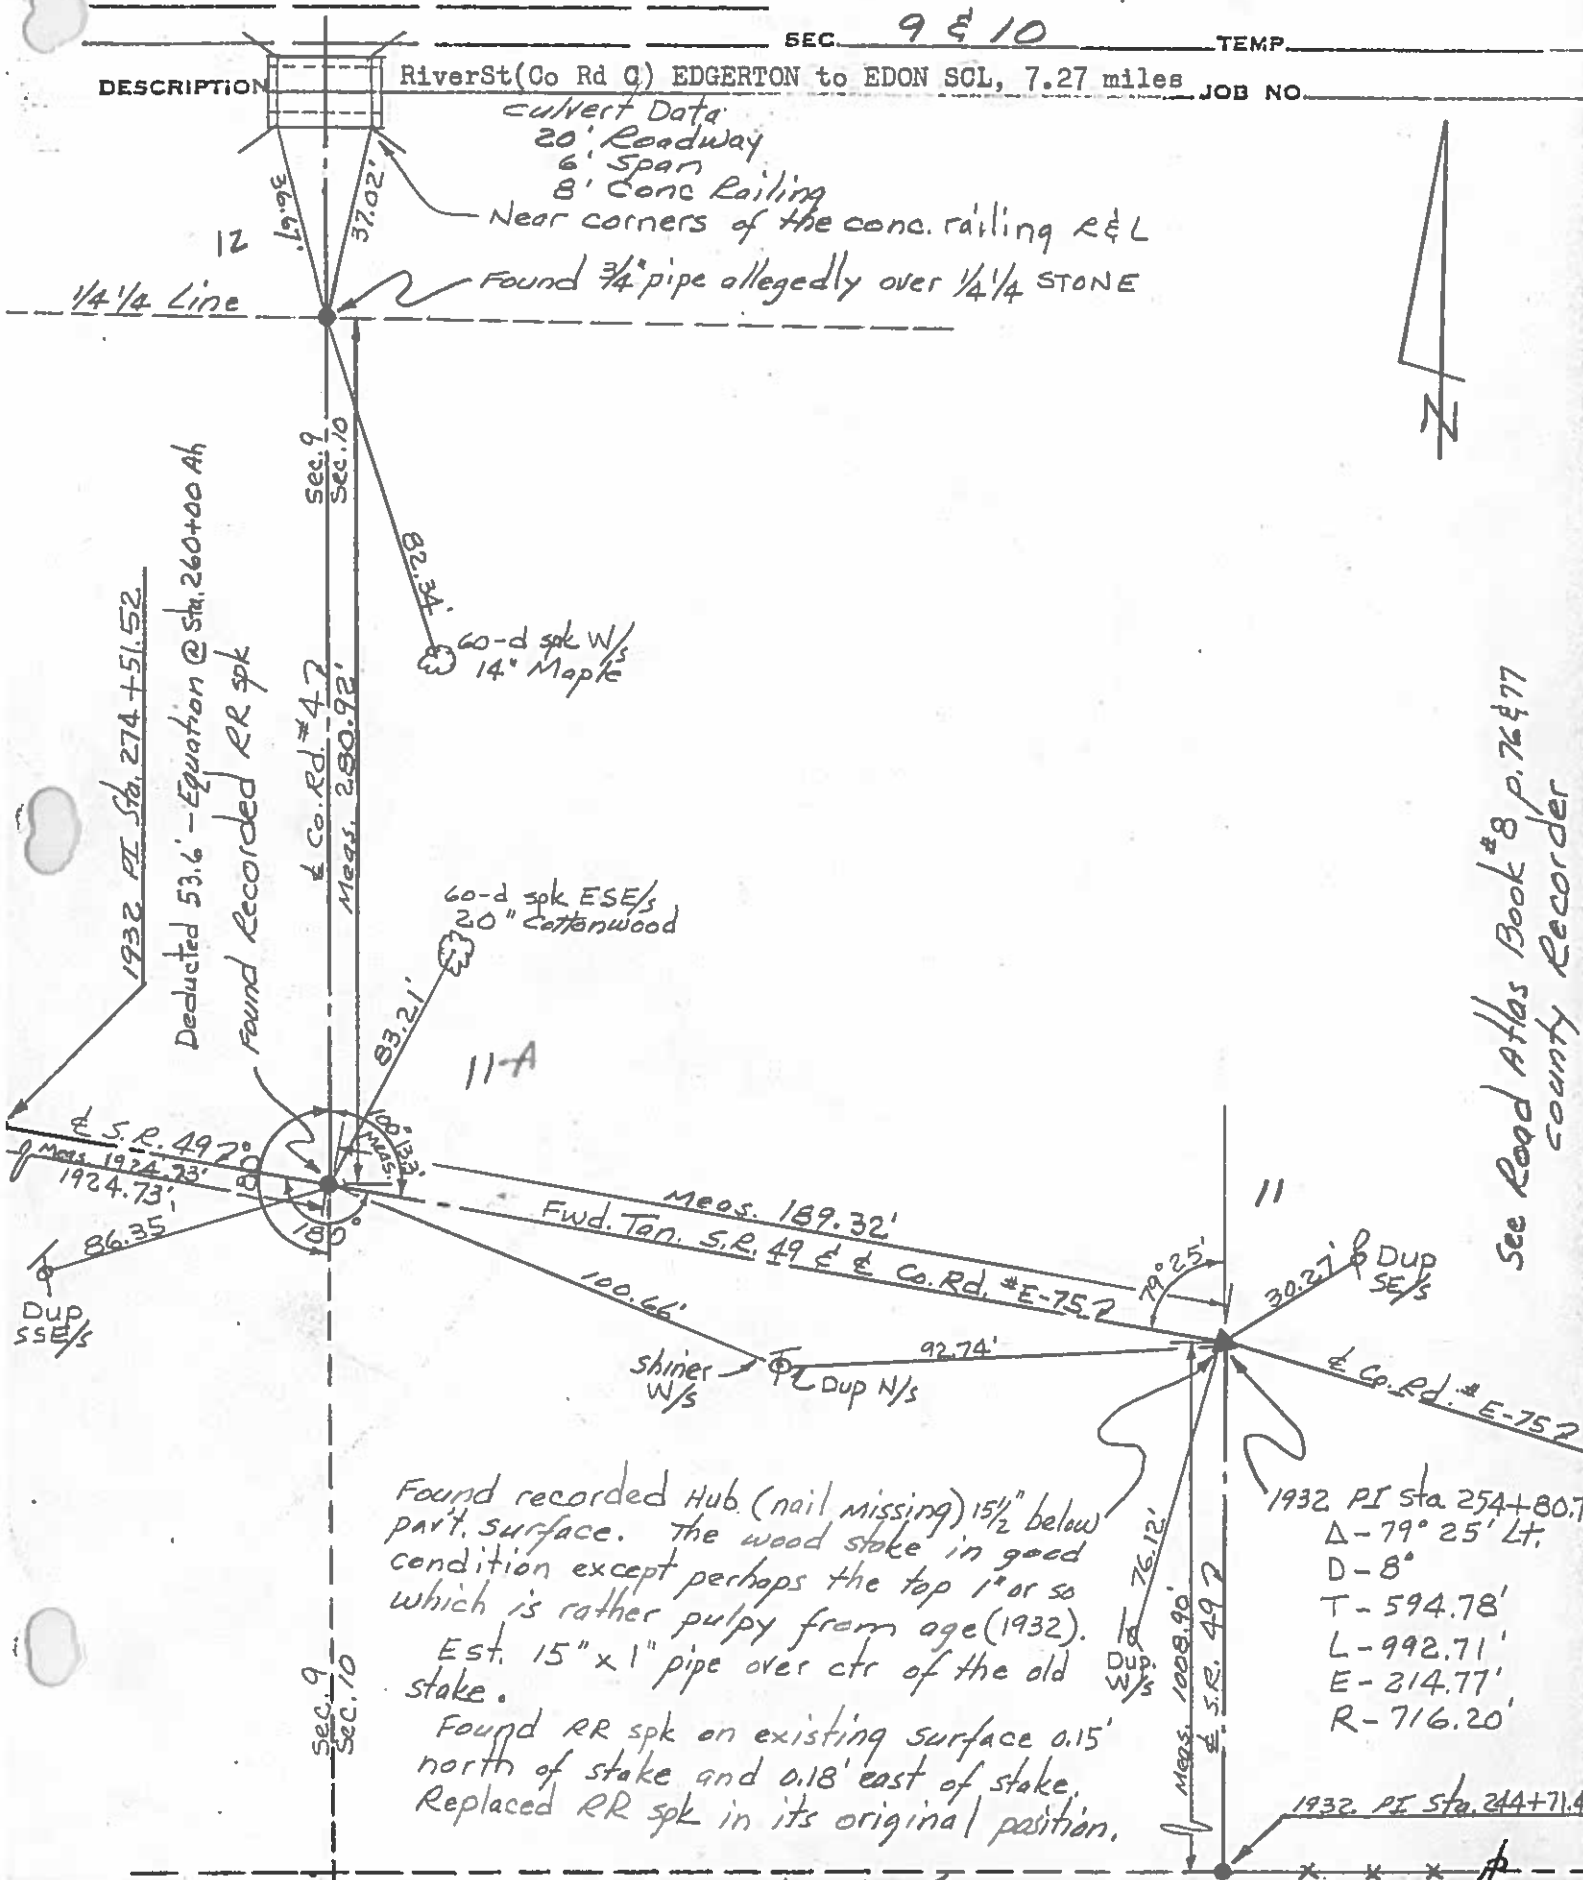 SEC. 9 & 10 TEMP.
DESCRIPTION RiverSt(Co Rd C) EDGERTON to EDON SCL, 7.27 miles JOB NO.
Culvert Data
20' Roadway
6' Span
8' Conc Railing
Near corners of the conc. railing R&L
36.67'
37.02'
12
1/4 1/4 Line
Found 3/4" pipe allegedly over 1/4 1/4 STONE
N
Sec. 9
Sec. 10
82.34'
60-d spk W/s
14" Maple
1932 PI Sta. 274+51.52
Deducted 53.6' - Equation @ Sta. 260+00 Ah
Found Recorded RR spk
℄ Co. Rd. #47
Meas. 280.92'
60-d spk ESE/s
20" Cottonwood
83.21'
11-A
See Road Atlas Book #8 p. 76 & 77
County Recorder
℄ S.R. 49
Meas. 1924.73'
1924.73'
86.35'
Dup
SSE/s
180°
100° 133'
Meas.
Meas. 189.32'
Fwd. Tan. S.R. 49 & ℄ Co. Rd. #E-75
79°25'
11
30.27'
Dup
SE/s
100.66'
shiner
W/s
Dup N/s
92.74'
℄ Co. Rd. #E-75
Found recorded Hub (nail missing) 15½" below
pav't. surface. The wood stake in good
condition except perhaps the top 1" or so
which is rather pulpy from age (1932).
Est. 15" x 1" pipe over ctr of the old
stake.
Found RR spk on existing surface 0.15'
north of stake and 0.18' east of stake.
Replaced RR spk in its original position.
76.12'
Dup.
W/s
Meas. 1008.90'
℄ S.R. 49
1932 PI Sta 254+80.7
Δ - 79° 25' Lt.
D - 8°
T - 594.78'
L - 992.71'
E - 214.77'
R - 716.20'
Sec. 9
Sec. 10
1932 PI Sta. 244+71.4